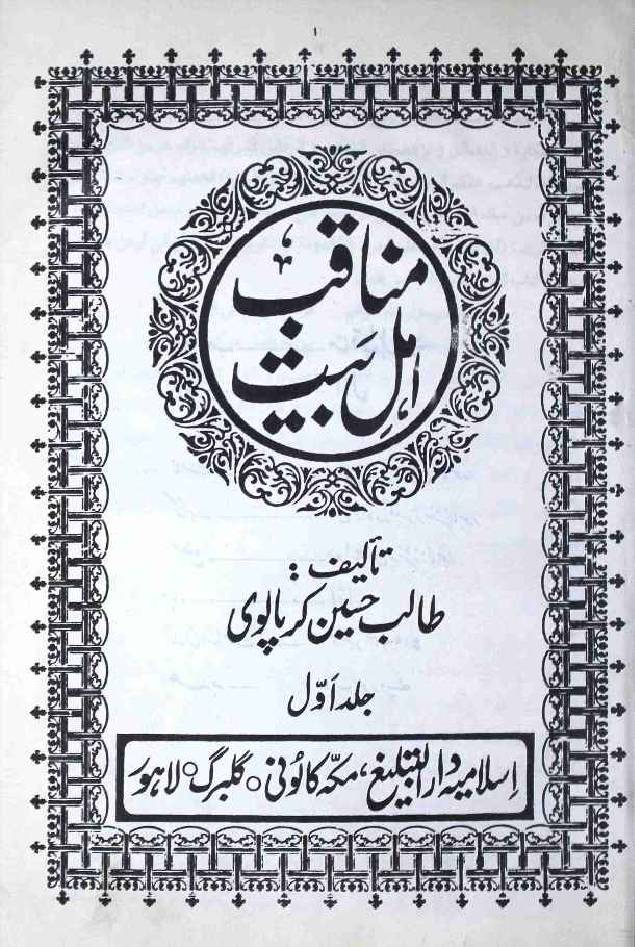 ۱
مناقب
اہلِ بیت
تألیف:
طالب حسین کرپالوی
جلد اوّل
اِسلامیہ دار التبلیغ، مکّہ کالونی ○ گلبرگ ○ لاہور